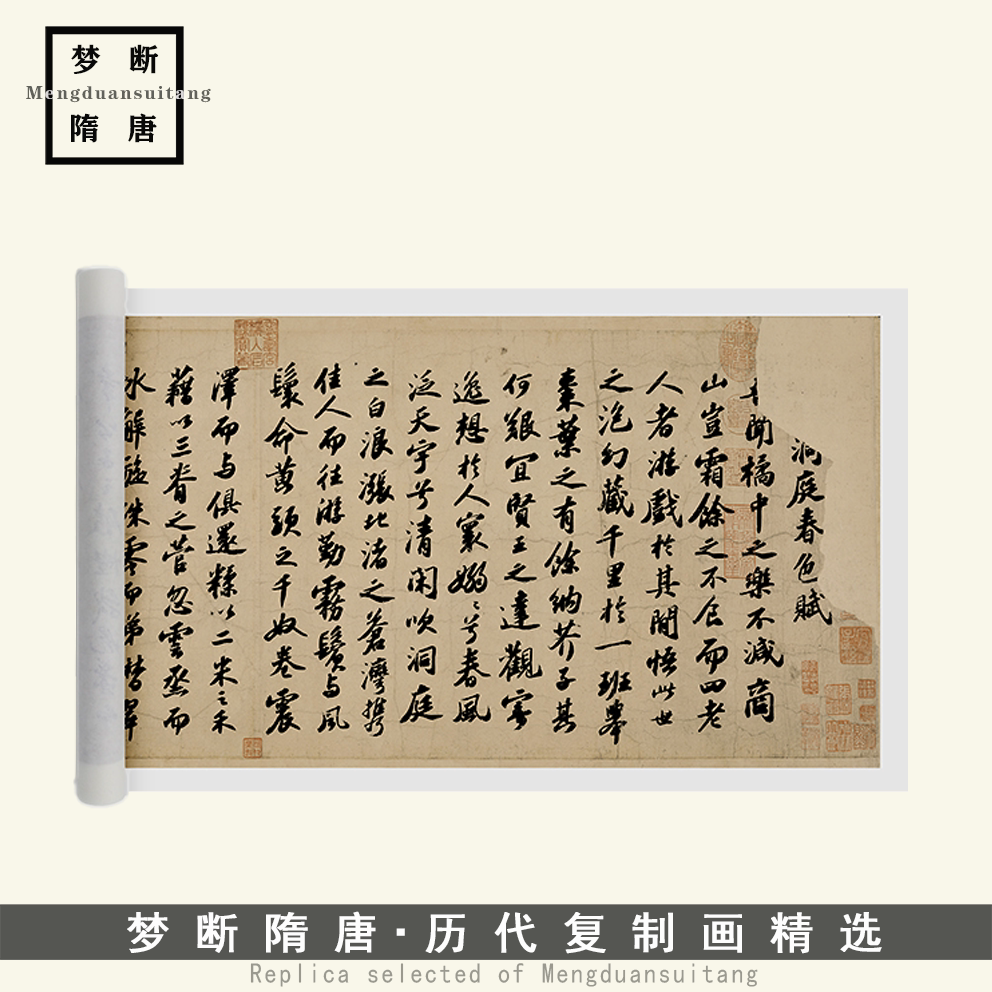 梦断
Mengduansuitang
隋唐
洞庭春色賦
聞橘中之樂不減商
山豈霜餘之不食而四老
人者游戲於其間悟此世
之泡幻藏千里於一班舉
棗葉之有餘納芥子其
何艱宜賢王之達觀寄
逸想於人寰嫋〻兮春風
泛天宇兮清閑吹洞庭
之白浪漲北渚之蒼灣攜
佳人而往游勤霧鬢与風
鬟命黃頭之千奴卷震
澤而与俱還糅以二米之禾
藉以三脊之菅忽雲烝而
冰解零而
梦断隋唐·历代复制画精选
Replica selected of Mengduansuitang